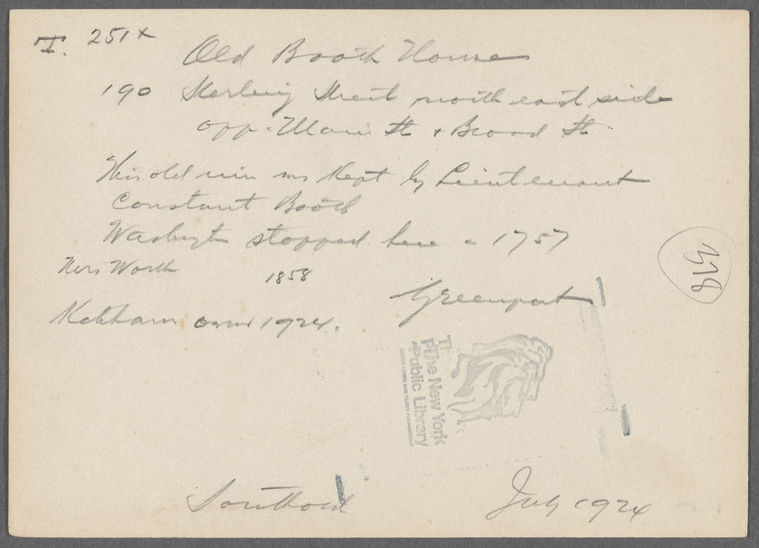 I. 251x
Old Booth House
190 Sterling Street north east side
opp. Main St + Broad St.
This old inn was Kept by Lieutenant
Constant Booth
Washington stopped here 1757
Worth 1858
Greenport
Ketcham 1924.
378
The New York
Public Library
Southold
July 1924